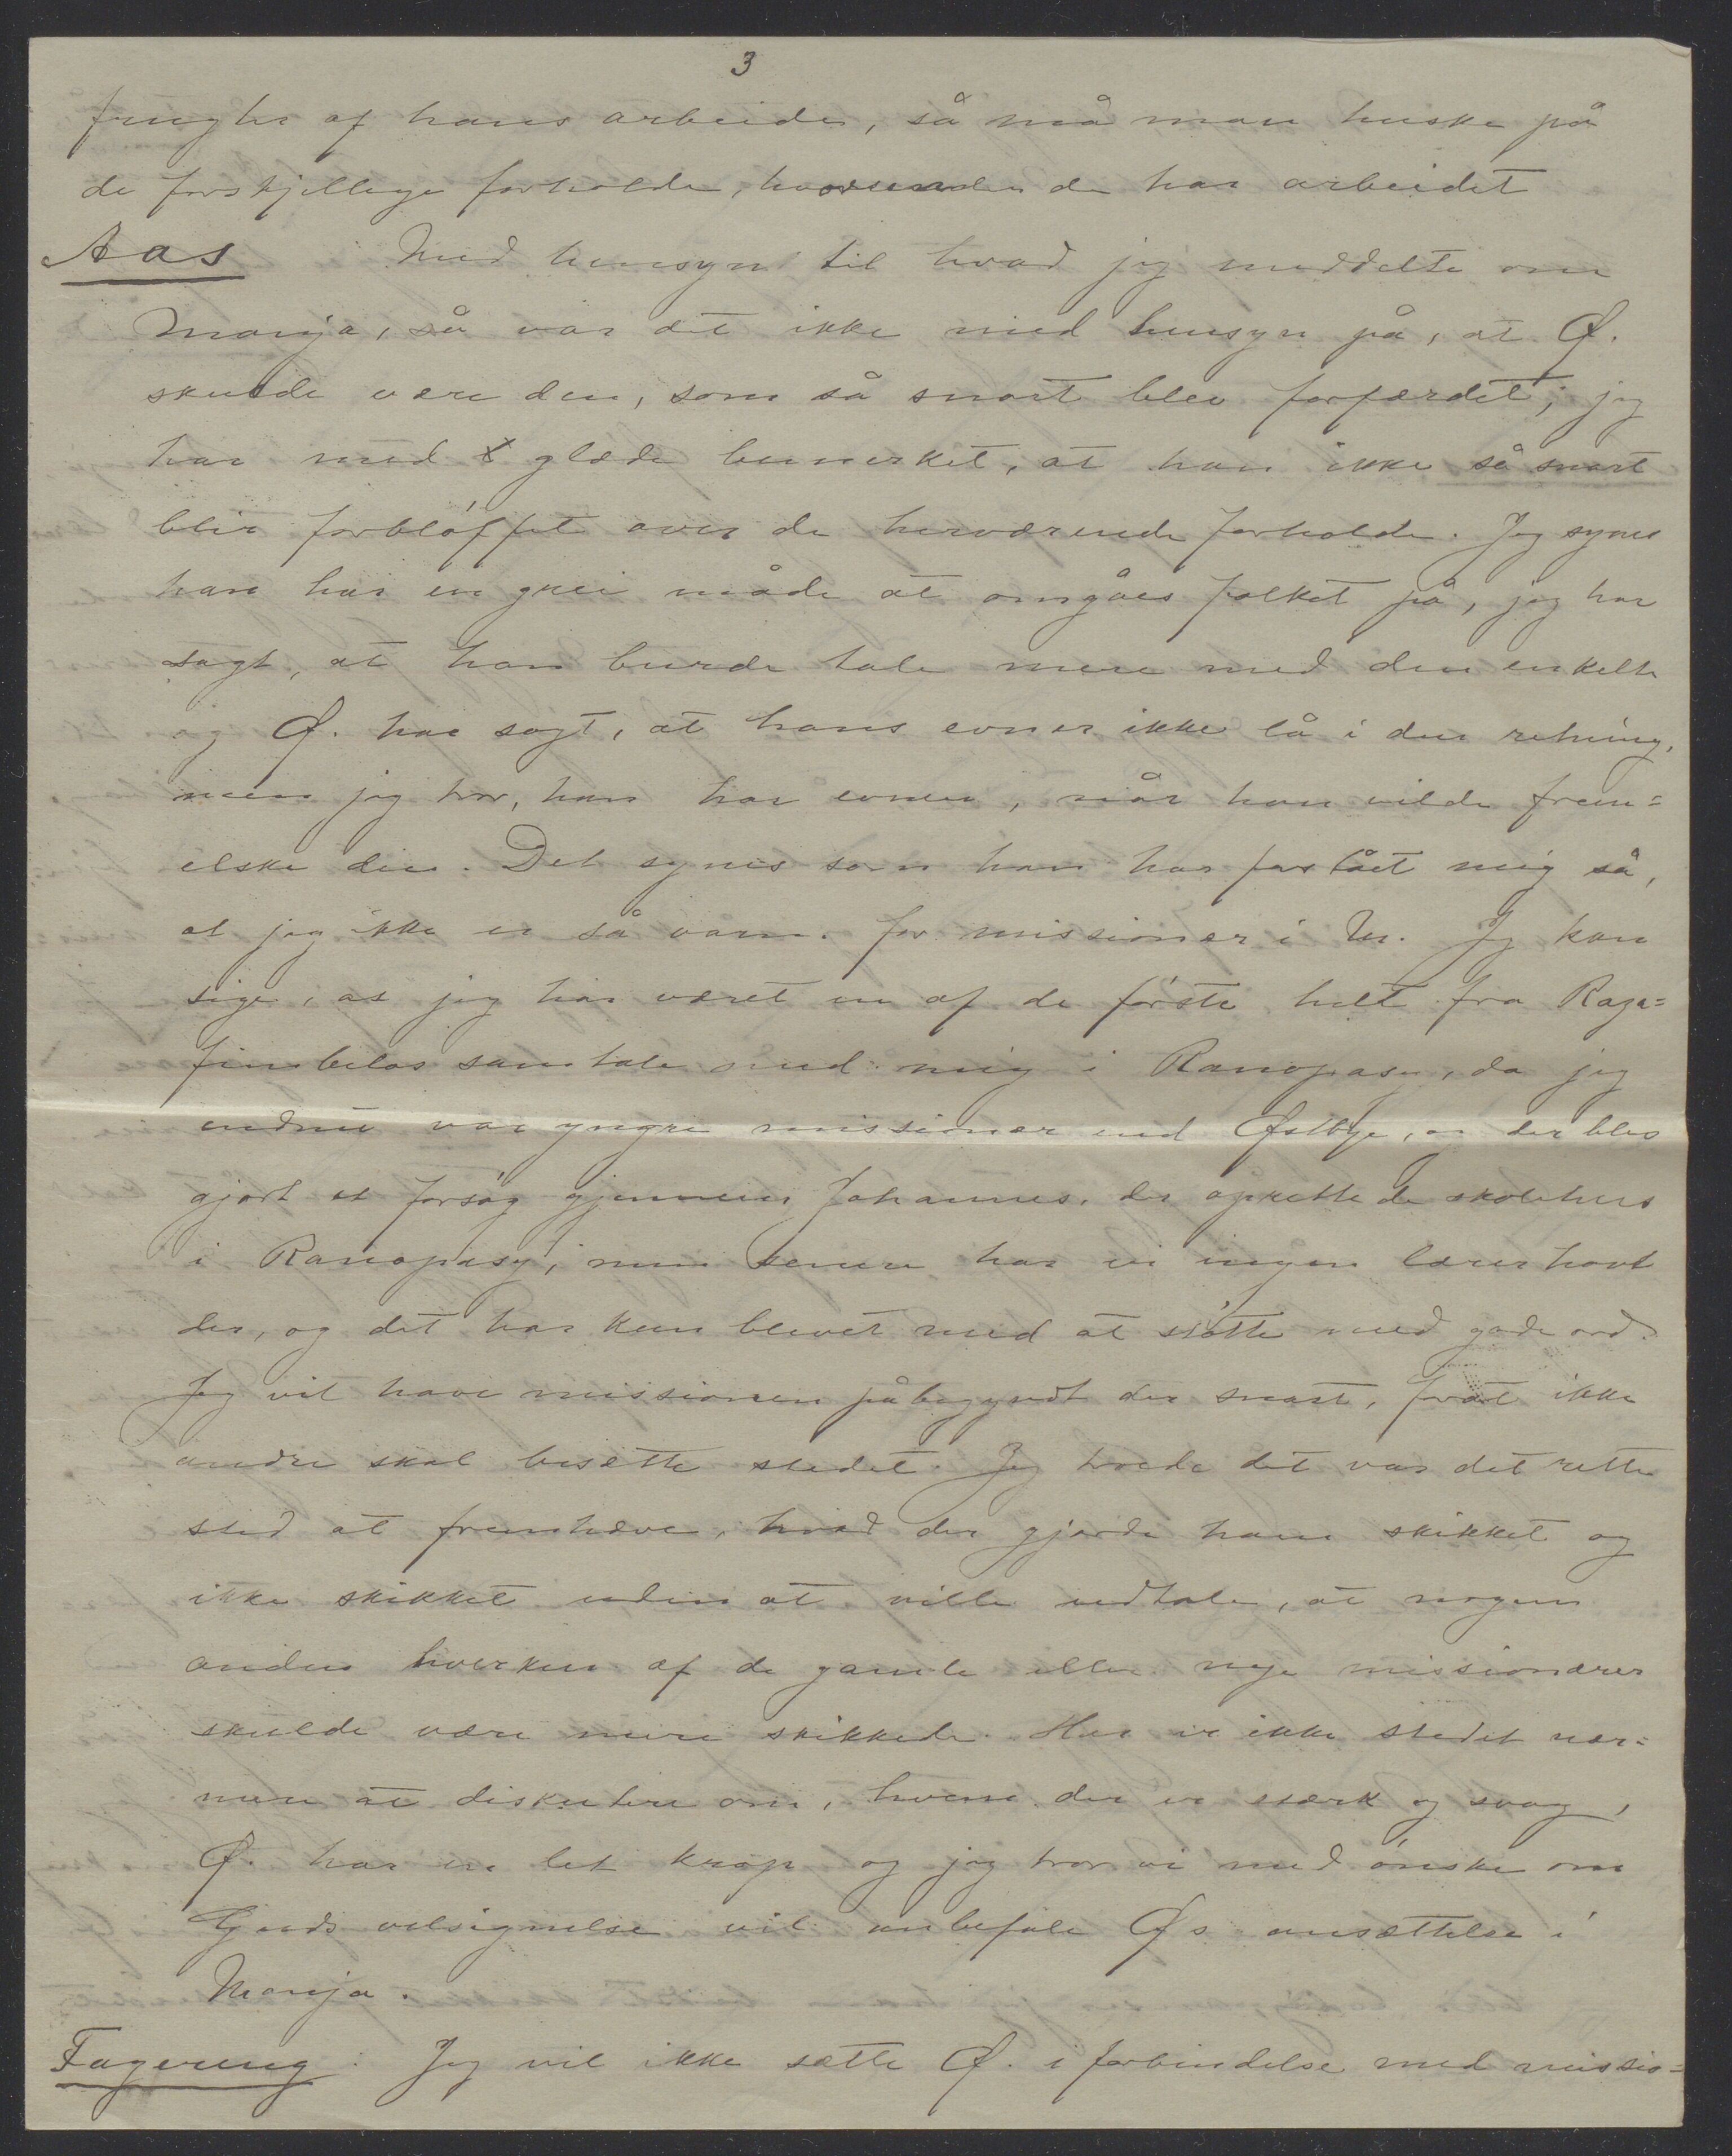 3
frugter af hans arbeide, så må man huske på
de forskjellige forholde, hvorunder de har arbeidet
Aas Med hensyn til hvad jeg meddelte om
Manja, så var det ikke med hensyn på, at Ø.
skulde være den, som så snart blev forfærdet; jeg
har med glæde bemerket, at han ikke så snart
blir forbløffet over de herværende forholde. Jeg synes
han har en grei måde at omgåes folket på, jeg har
sagt, at han burde tale mere med den enkelte
og Ø. har sagt, at hans evner ikke lå i den retning,
men jeg tror, han har evner, når han vilde frem=
elske den. Det synes som han har forstået mig så,
at jeg ikke er så varm for missionen i M. Jeg kan
sige, at jeg har været en af de første helt fra Raza=
fimbelos samtale med mig i Ranopasy, da jeg
endnu var yngre missionær end Østbye, og der blev
gjort et forsøg gjennem Johannes, der oprettede skolehus
i Ranopasy; men senere har vi ingen lærer havt
der, og det har kun blevet med at støtte med gode ord.
Jeg vil have missionen påbegyndt der snart, forat ikke
andre skal besætte stedet. Jeg troede det var det rette
sted at fremhæve, hvad der gjorde ham skikket og
ikke skikket uden at ville udtale, at nogen
anden hverken af de gamle eller nye missionærer
skulde være mere skikkede. Her er ikke stedet nær=
mere at diskutere om, hvem der er stærk og svag,
Ø. har en let krop og jeg tror vi med ønske om
Guds velsignelse vil anbefale Øs ansættelse i
Manja.
Fagereng: Jeg vil ikke sætte Ø. i forbindelse med missio=